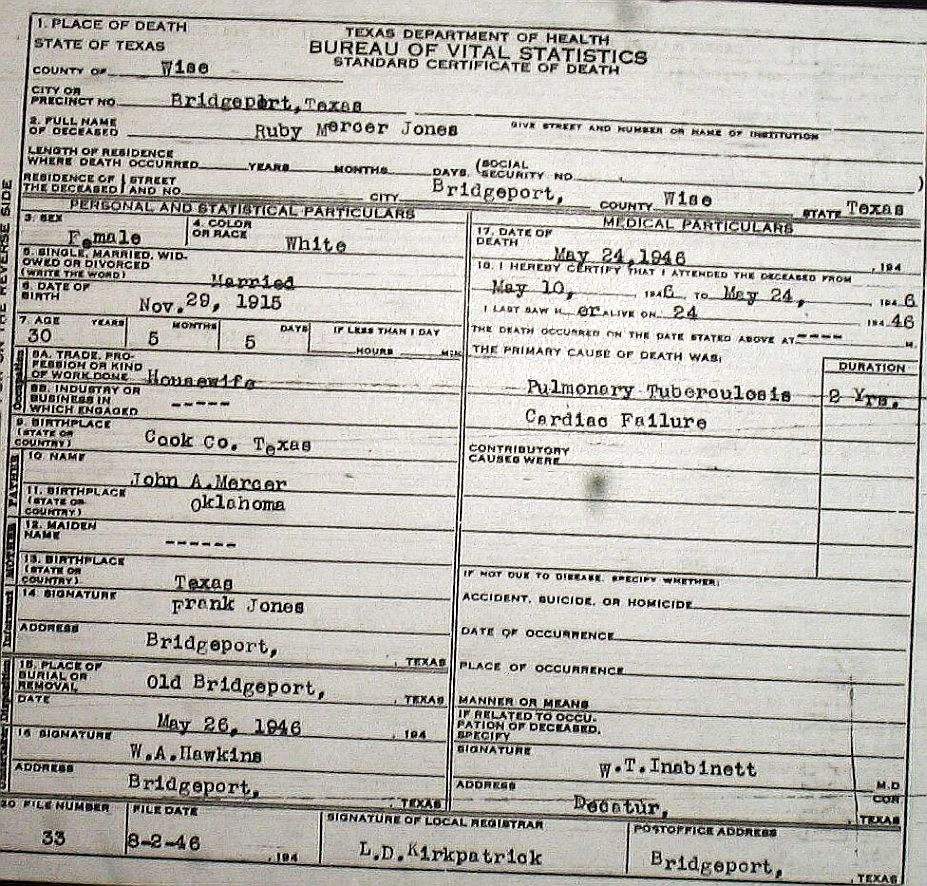 1. PLACE OF DEATH
STATE OF TEXAS
COUNTY OF Wise
TEXAS DEPARTMENT OF HEALTH
BUREAU OF VITAL STATISTICS
STANDARD CERTIFICATE OF DEATH
CITY OR
PRECINCT NO. Bridgeport, Texas
2. FULL NAME
OF DECEASED Ruby Mercer Jones
GIVE STREET AND NUMBER OR NAME OF INSTITUTION
LENGTH OF RESIDENCE
WHERE DEATH OCCURRED YEARS MONTHS DAYS. (SOCIAL SECURITY NO. )
RESIDENCE OF STREET
THE DECEASED AND NO. CITY Bridgeport, COUNTY Wise STATE Texas
ON THE REVERSE SIDE
PERSONAL AND STATISTICAL PARTICULARS
3. SEX
Female
4. COLOR
OR RACE
White
5. SINGLE, MARRIED, WID-
OWED OR DIVORCED
(WRITE THE WORD) Married
6. DATE OF
BIRTH Nov. 29, 1915
7. AGE YEARS MONTHS DAYS IF LESS THAN 1 DAY
30 5 5 HOURS MIN.
8A. TRADE, PRO-
FESSION OR KIND
OF WORK DONE Housewife
8B. INDUSTRY OR
BUSINESS IN
WHICH ENGAGED -----
Occupation
9. BIRTHPLACE
(STATE OR
COUNTRY) Cook Co. Texas
FATHER
10. NAME
John A.Mercer
11. BIRTHPLACE
(STATE OR
COUNTRY) Oklahoma
MOTHER
12. MAIDEN
NAME ------
13. BIRTHPLACE
(STATE OR
COUNTRY) Texas
Informant
14. SIGNATURE
Frank Jones
ADDRESS
Bridgeport, , TEXAS
15. PLACE OF
BURIAL OR
REMOVAL Old Bridgeport, , TEXAS
DATE
May 26, 1946 , 194
16 SIGNATURE
W.A.Hawkins
ADDRESS
Bridgeport, , TEXAS
MEDICAL PARTICULARS
17. DATE OF
DEATH May 24,1946 , 194
18. I HEREBY CERTIFY THAT I ATTENDED THE DECEASED FROM
May 10, 194 6 TO May 24, 194 6
I LAST SAW H er ALIVE ON 24 194 46
THE DEATH OCCURRED ON THE DATE STATED ABOVE AT ---- M.
THE PRIMARY CAUSE OF DEATH WAS: DURATION
Pulmonary Tuberculosis 2 Yrs.
Cardiac Failure
CONTRIBUTORY
CAUSES WERE
IF NOT DUE TO DISEASE, SPECIFY WHETHER:
ACCIDENT, SUICIDE, OR HOMICIDE
DATE OF OCCURRENCE
PLACE OF OCCURRENCE
MANNER OR MEANS
IF RELATED TO OCCU-
PATION OF DECEASED,
SPECIFY
SIGNATURE
W.T.Inabinett M.D
ADDRESS COR
Decatur, , TEXAS
20 FILE NUMBER FILE DATE SIGNATURE OF LOCAL REGISTRAR POSTOFFICE ADDRESS
33 8-2-46 , 194 L.D.Kirkpatrick Bridgeport, , TEXAS